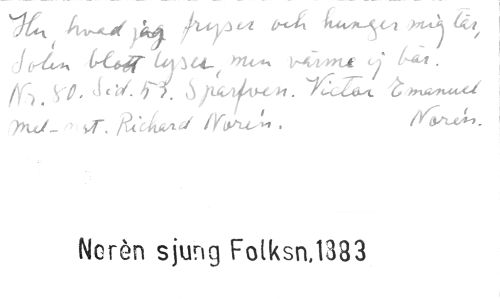 Hu, hvad jag fryser och hunger mig tär,
Solen blott lyser, men värme ej bär.
Nr. 80. Sid. 53. Sparfven. Victor Emanuel
mel-nst. Richard Norén. Norén.
Norèn sjung Folksn,1883